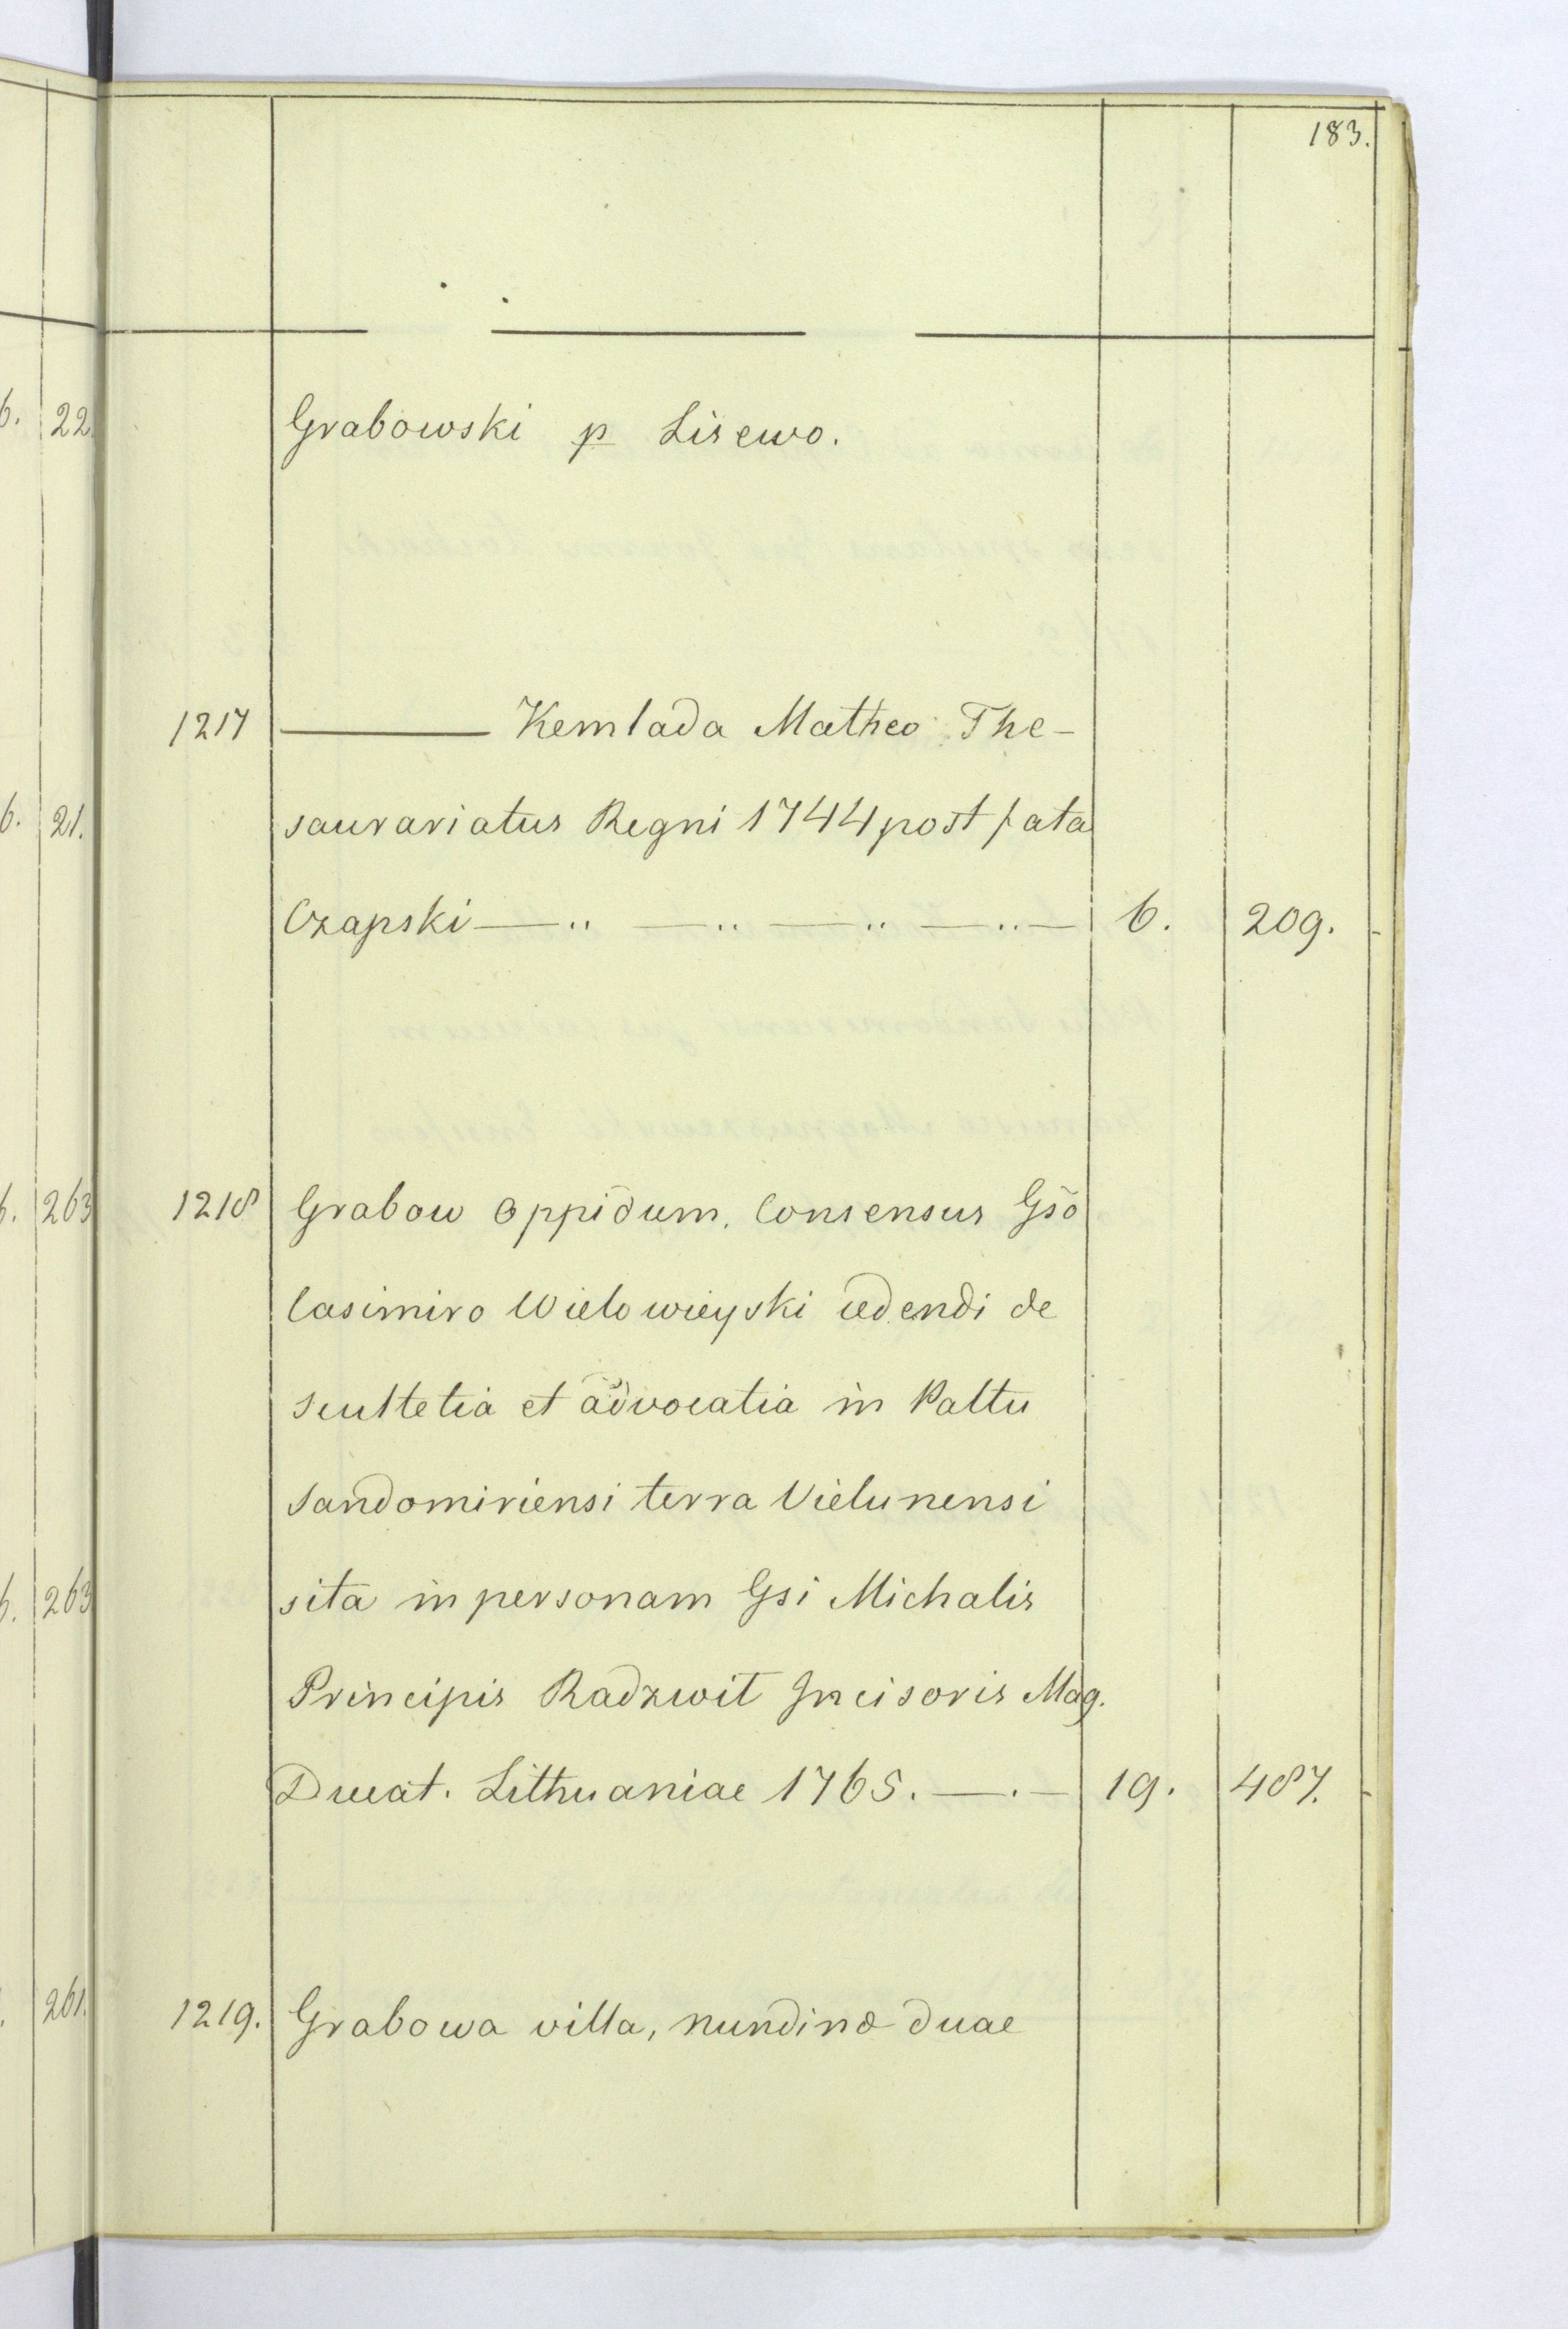 183.
Grabowski p Lisewo.
1217 ——— Kemlada Matheo The-
saurariatus Regni 1744 post fata
Czapski —„ —„ —„ —„— 6. 209.
1218 Grabow oppidum. Consensus Gso
Casimiro Wielowieyski cedendi de
scultetia et advocatia in Pattu
Sandomiriensi terra Vielunensi
sita in personam Gsi Michalis
Principis Radzwit Incisoris Mag.
Ducat. Lithuaniae 1765. —.— 19. 487.
1219. Grabowa villa, nundinæ duae
6. 22.
6. 21.
6. 263
6. 263
261.